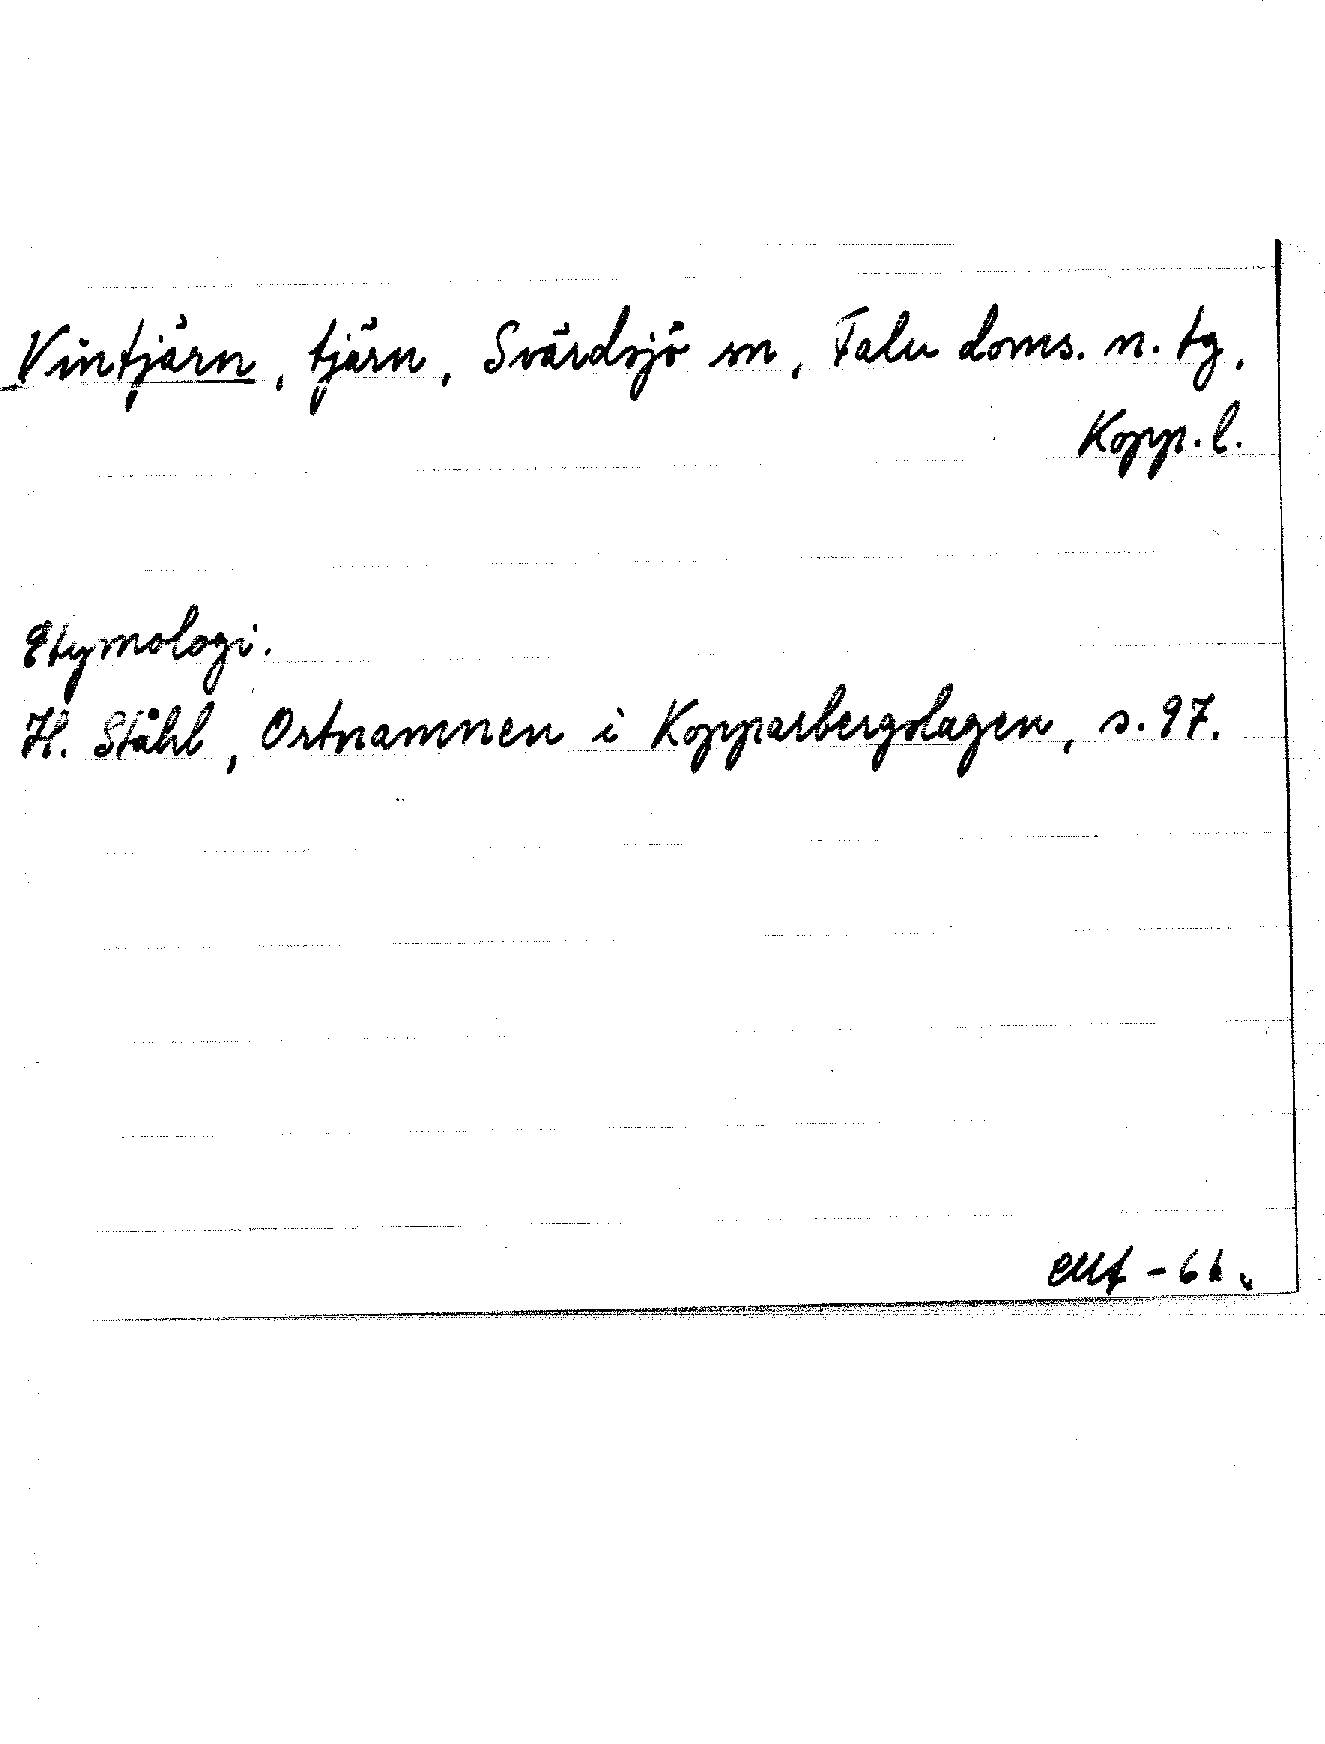 Vintjärn, tjärn, Svärdsjö sn, Falu doms. n. tg,
Kopp. l.
Etymologi.
H. Ståhl, Ortnamnen i Kopparbergslagen, s. 97.